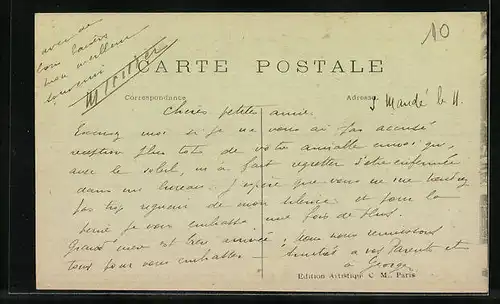 10
avec de
bon baisers
mon meilleur
souvenir
CARTE POSTALE
Correspondance
Adresse
St Mandé le 11.
Chères petites amies.
Excusez moi si je ne vous ai pas accusé
réception plus tôt de votre aimable envoi qui,
avec le soleil, m'a fait regretter d'être enfermée
dans un bureau. J'espère que vous ne me tiendrez
pas trop rigueur de mon silence et pour la
peine je vous embrasse une fois de plus.
Grand'mère est bien arrivée; nous nous réunissons
tous pour vous embrasser
amitiés à vos Parents et
à Georges
Edition Artistique C. M., Paris